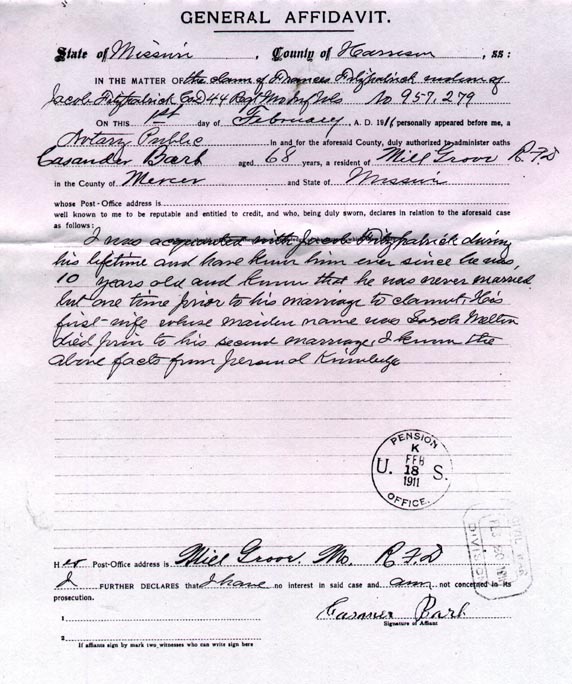 GENERAL AFFIDAVIT.
State of Missouri, County of Harrison, ss:
IN THE MATTER OF the claim of Frances Fitzpatrick widow of
Jacob Fitzpatrick Co D 44 Regt Mo Inf Vols No 957,279
ON THIS 1st day of February, A. D. 1911 personally appeared before me, a
Notary Public In and for the aforesaid County, duly authorized to administer oaths
Casander Barb aged 68 years, a resident of Mill Grove R.F.D
in the County of Mercer and State of Missouri
whose Post-Office address is
well known to me to be reputable and entitled to credit, and who, being duly sworn, declares in relation to the aforesaid case
as follows:
I was acquainted with Jacob Fitzpatrick during
his lifetime and have known him ever since he was
10 years old and know that he was never married
but one time prior to his marriage to claimant, His
first wife whose maiden name was Sarah
died prior to his second marriage, I know the
above facts from personal Knowledge
PENSION
K
FEB
U. 18 S.
1911
OFFICE.
Her Post-Office address is Mill Grove Mo. R.F.D
I FURTHER DECLARES that I have no interest in said case and am not concerned in its
prosecution.
1
Signature of Affiant
2
If affiants sign by mark two witnesses who can write sign here